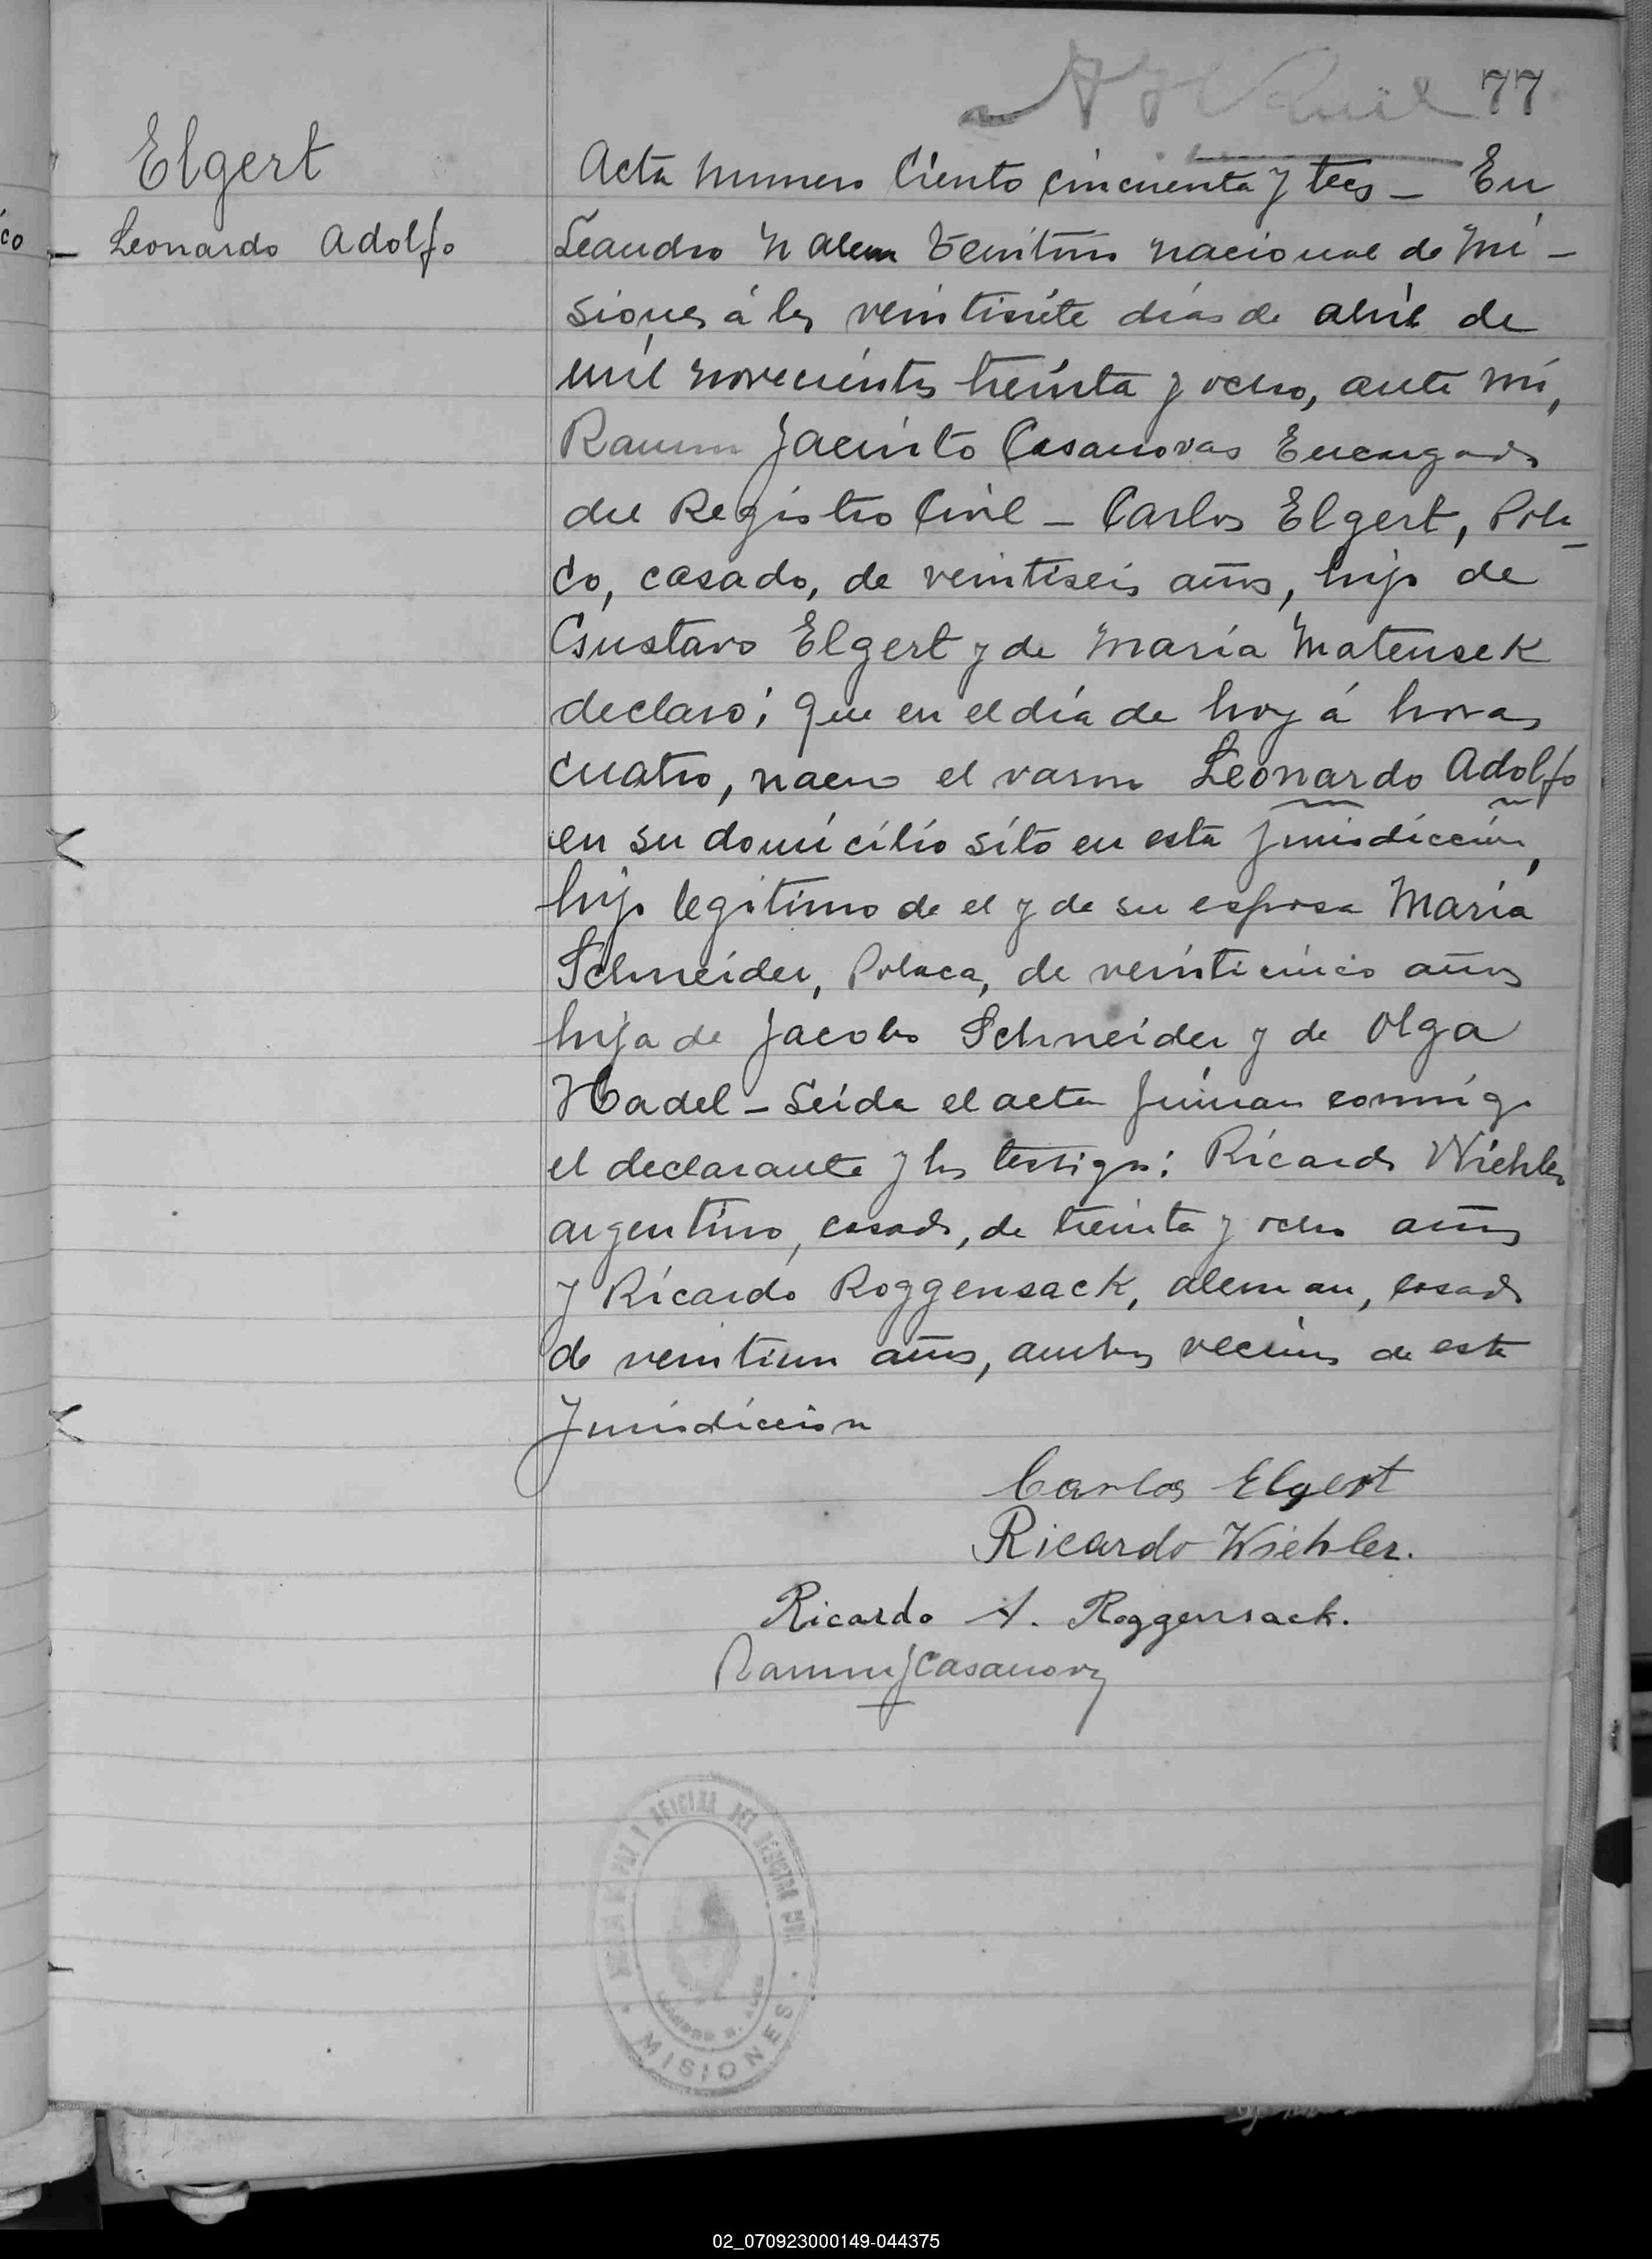 77
Elgert
Leonardo Adolfo
co
Acta numero Ciento cincuenta y tres — En
Leandro N Alem Territorio nacional de Mi-
siones á los veintisiete días de abril de
mil novecientos treinta y ocho, ante mí,
Ramon Jacinto Casanovas Encargado
del Registro Civil — Carlos Elgert, Pola-
co, casado, de veintiseis años, hijo de
Gustavo Elgert y de María Matensek
declaró; Que en el día de hoy á horas
cuatro, nacio el varon Leonardo Adolfo
en su domicilio sito en esta Jurisdicción,
hijo legitimo de el y de su esposa María
Schneider, Polaca, de veinticinco años
hija de Jacobo Schneider y de Olga
Hadel — Leida el acta firman conmigo
el declarante y los testigos: Ricardo Wiehler
argentino, casado, de treinta y ocho años
y Ricardo Roggensack, aleman, casado
de veintiun años, ambos vecinos de esta
Jurisdiccion
Carlos Elgert
Ricardo Wiehler.
Ricardo A. Roggensack.
Ramon J Casanovas
PAZ Y OFICINA DEL REGISTRO CIVIL
LEANDRO N. ALEM
MISIONES
02_070923000149-044375